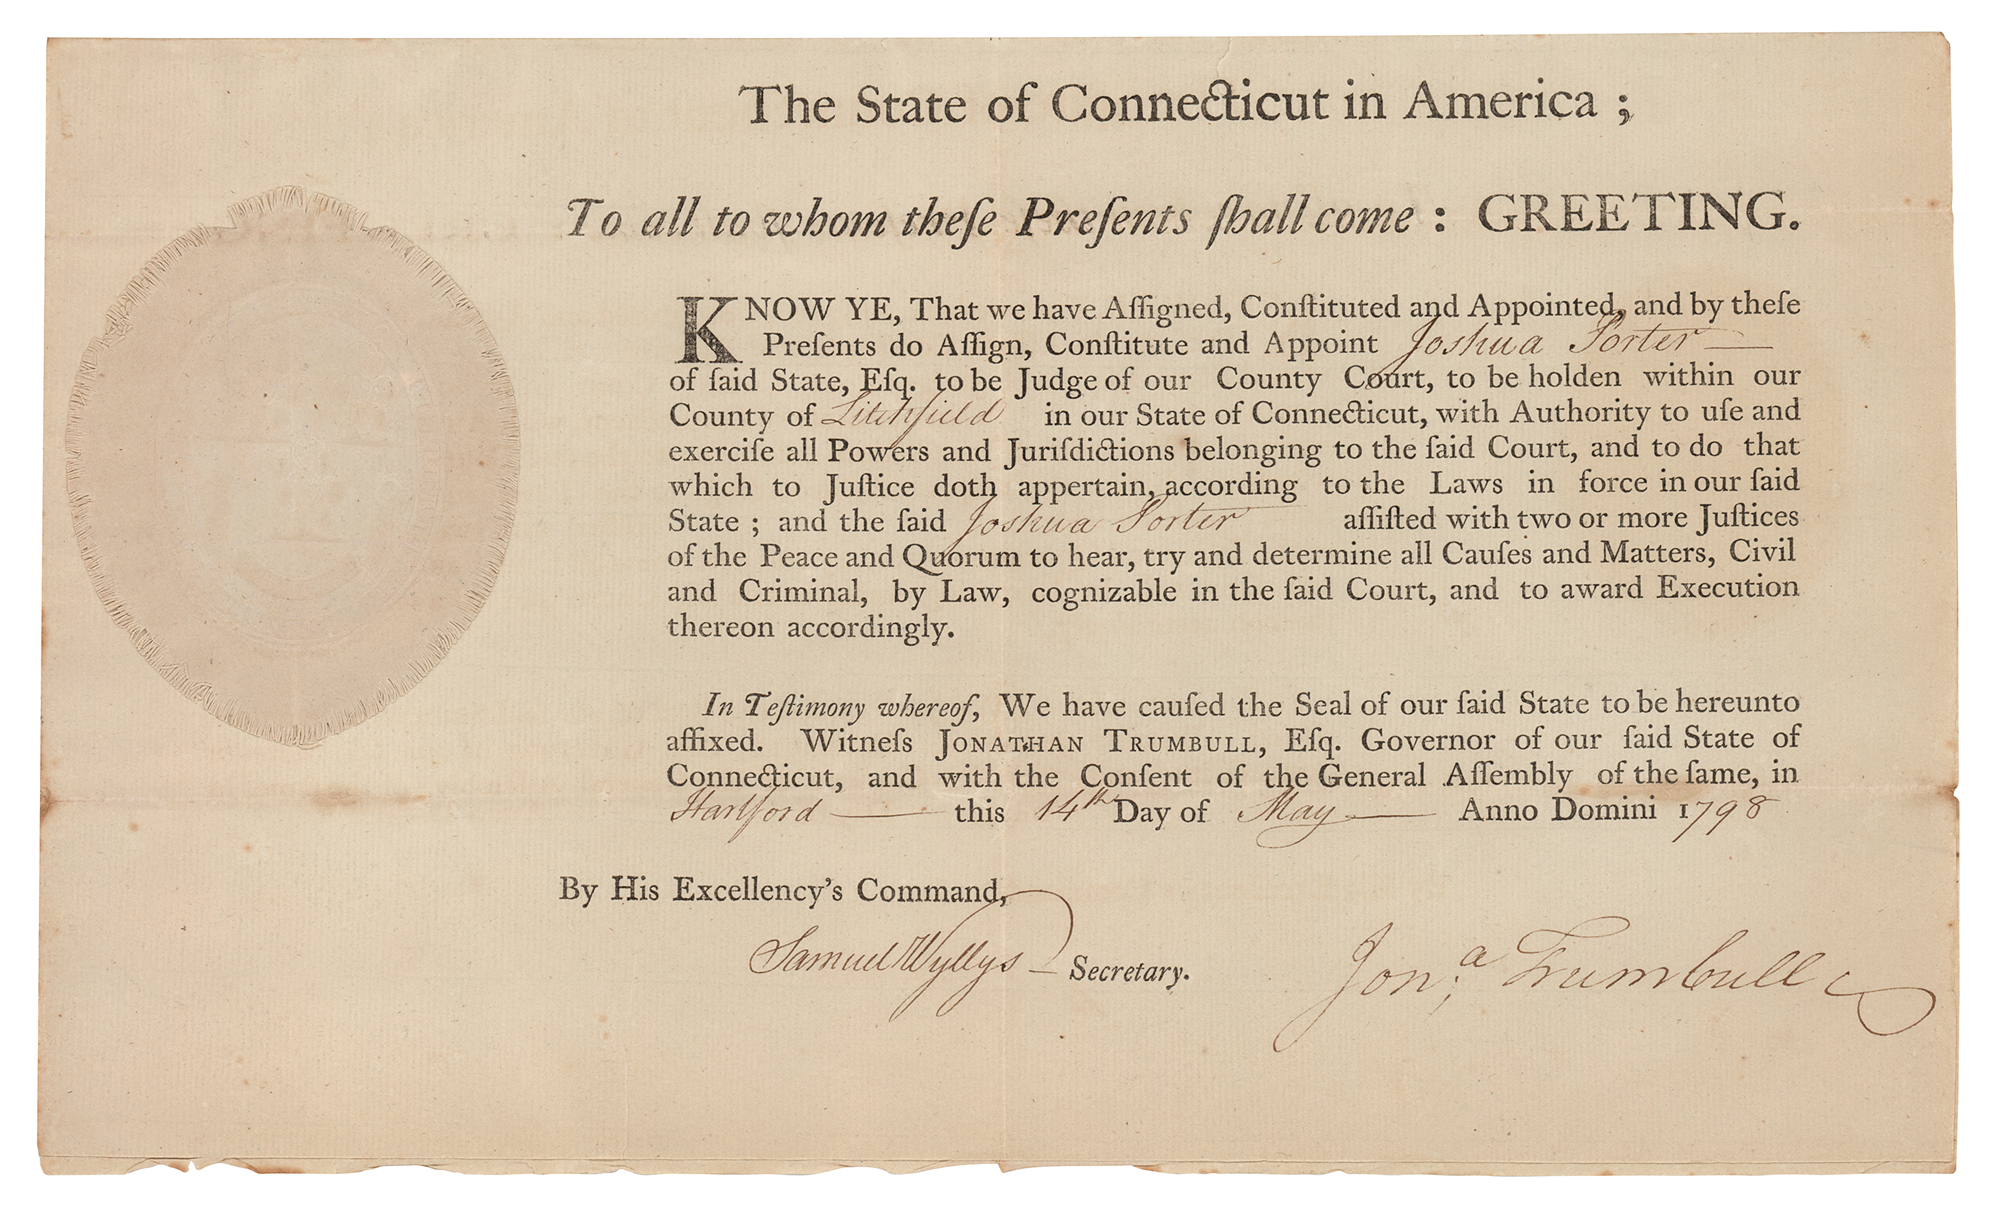 The State of Connecticut in America ;
To all to whom theſe Preſents ſhall come : GREETING.
KNOW YE, That we have Aſſigned, Conſtituted and Appointed, and by theſe
Preſents do Aſſign, Conſtitute and Appoint Joshua Porter —
of ſaid State, Eſq. to be Judge of our County Court, to be holden within our
County of Litchfield in our State of Connecticut, with Authority to uſe and
exerciſe all Powers and Juriſdictions belonging to the ſaid Court, and to do that
which to Juſtice doth appertain, according to the Laws in force in our ſaid
State ; and the ſaid Joshua Porter aſſiſted with two or more Juſtices
of the Peace and Quorum to hear, try and determine all Cauſes and Matters, Civil
and Criminal, by Law, cognizable in the ſaid Court, and to award Execution
thereon accordingly.
In Teſtimony whereof, We have cauſed the Seal of our ſaid State to be hereunto
affixed. Witneſs JONATHAN TRUMBULL, Eſq. Governor of our ſaid State of
Connecticut, and with the Conſent of the General Aſſembly of the ſame, in
Hartford — this 14th Day of May — Anno Domini 1798
By His Excellency's Command,
Samuel Wyllys Secretary.
Jon;a Trumbull